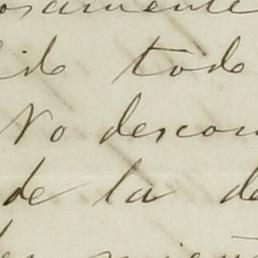 osamente
ido todo
No descon
de la de